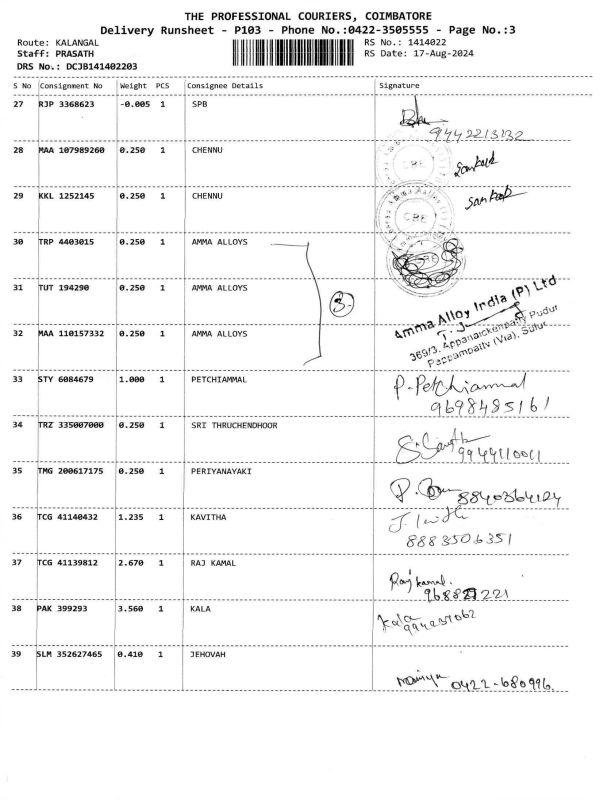 THE PROFESSIONAL COURIERS, COIMBATORE
Delivery Runsheet - P103 - Phone No.:0422-3505555 - Page No.:3
Route: KALANGAL RS No.: 1414022
Staff: PRASATH RS Date: 17-Aug-2024
DRS No.: DCJB141402203
S No Consignment No Weight PCS Consignee Details Signature
27 RJP 3368623 -0.005 1 SPB
9442213132
28 MAA 107989260 0.250 1 CHENNU
CBE
29 KKL 1252145 0.250 1 CHENNU
CBE
30 TRP 4403015 0.250 1 AMMA ALLOYS
CBE
31 TUT 194290 0.250 1 AMMA ALLOYS
3
Amma Alloy India (P) Ltd
32 MAA 110157332 0.250 1 AMMA ALLOYS
369/3, Appanaickenpatty Pudur
Pappampatty (Via), Sulur
33 STY 6084679 1.000 1 PETCHIAMMAL
P. Petchiammal
9698485161
34 TRZ 335007000 0.250 1 SRI THRUCHENDHOOR
9944110011
35 TMG 200617175 0.250 1 PERIYANAYAKI
8840364124
36 TCG 41140432 1.235 1 KAVITHA
8883506351
37 TCG 41139812 2.670 1 RAJ KAMAL
Raj kamal.
38 PAK 399293 3.560 1 KALA
Kala
39 SLM 352627465 0.410 1 JEHOVAH
0422-680996